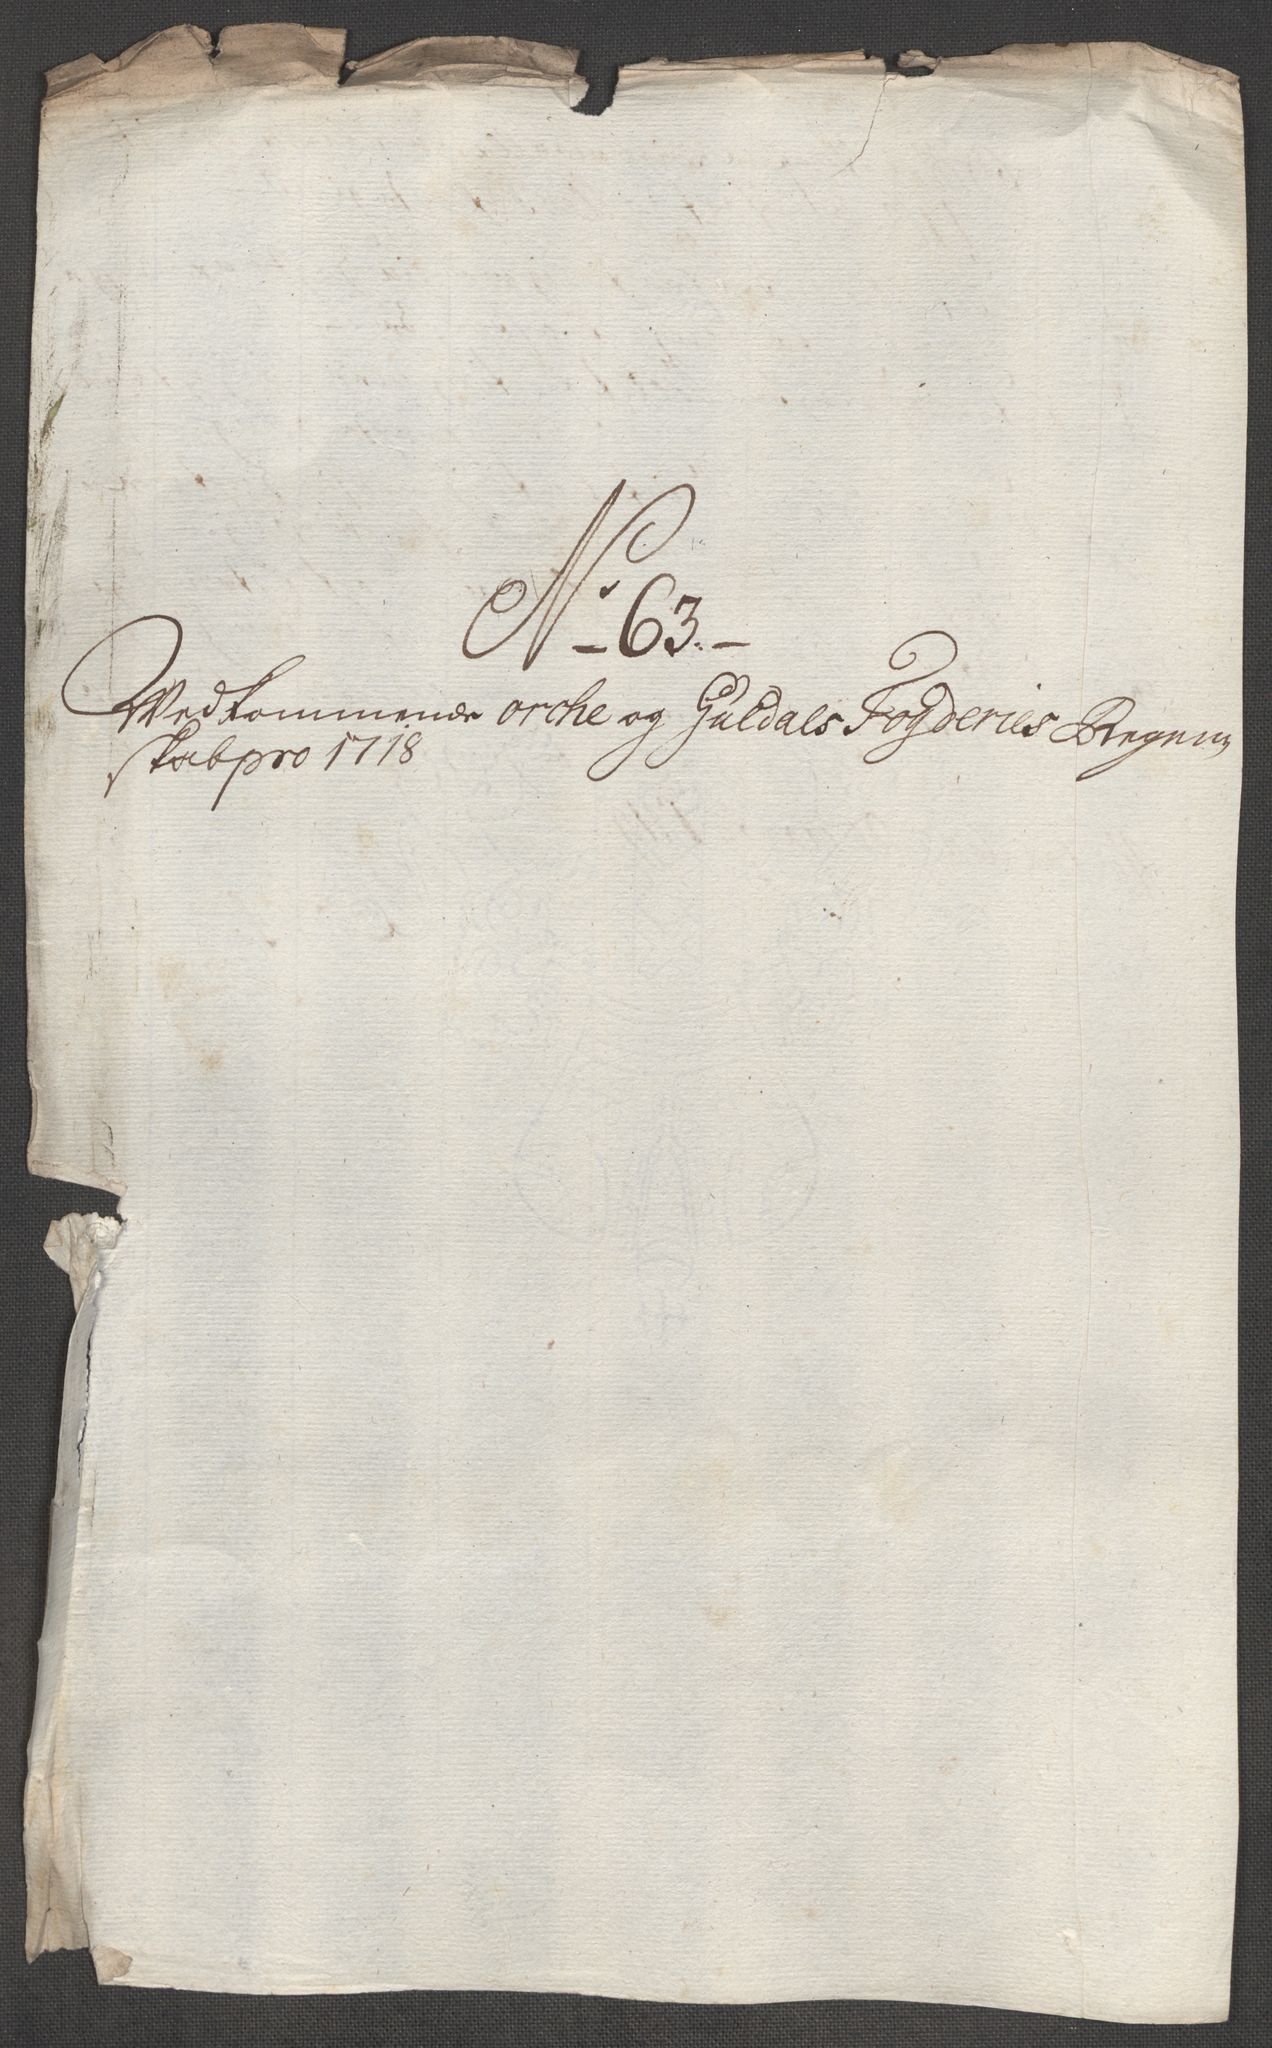 No. 63.
Vedkommende orche og Guldals Fogderies Regen-
skab pro 1718